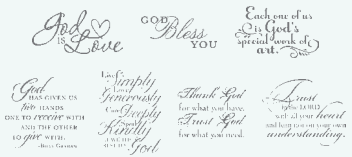 God
IS Love
GOD
Bless
YOU
Each one of us
is God's
special work of
art.
God
HAS GIVEN US
two HANDS
ONE TO receive WITH
AND THE OTHER
TO give WITH.
-BILLY GRAHAM
Live Simply
Love
Generously
Care Deeply
Speak
Kindly
God.
Thank God
for what you have,
Trust God
for what you need.
Trust
in the LORD
with all your heart
and lean not on your own
understanding.